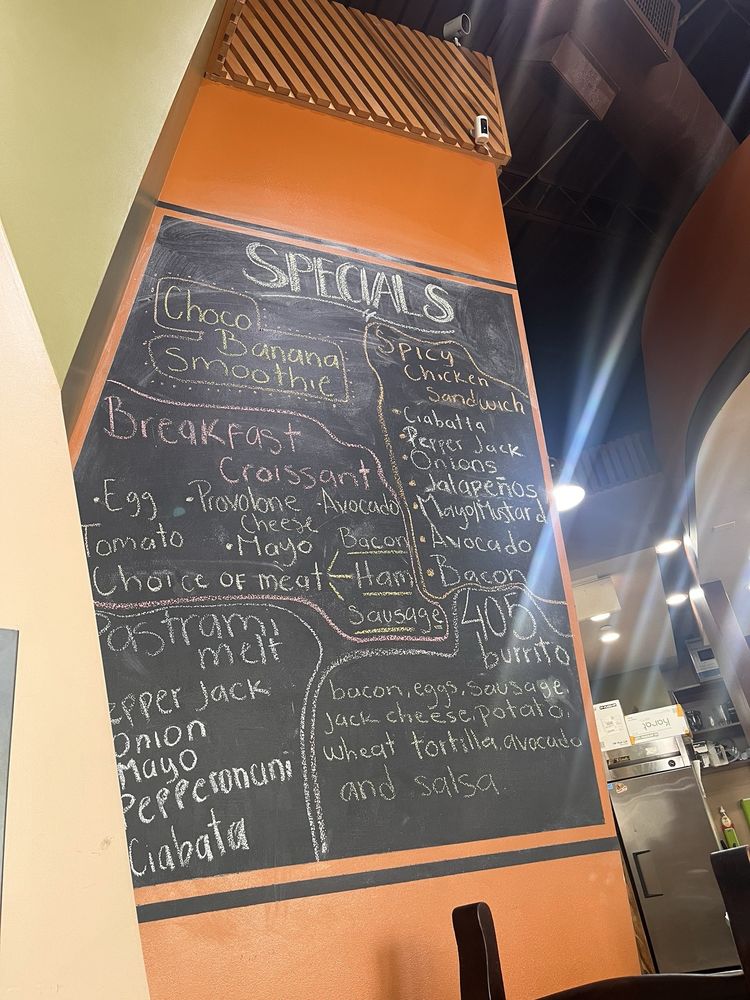 SPECIALS
Choco
Banana
Smoothie
Spicy
Chicken
Sandwich
• Ciabatta
• Pepper Jack
• Onions
• Jalapeños
• Mayo/Mustard
• Avocado
• Bacon
Breakfast
Croissant
• Egg • Provolone Avocado
Cheese
Tomato • Mayo Bacon
Choice of meat < Ham
Sausage
Pastrami
melt
epper Jack
Onion
Mayo
Pepperoncini
Ciabata
405
burrito
bacon, eggs, sausage,
jack cheese, potato,
wheat tortilla, avocado
and salsa.
Karat